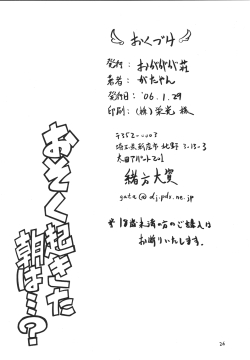 おくづけ
発行：わがががが荘
著者：がたやん
発行日：'06.1.29
印刷：(有)栄光 様
〒352-0003
埼玉県新座市北野 3-13-3
太田アパート201
緒方大賀
gata@dj.pdx.ne.jp
※18歳未満の方のご購入は
お断りいたします。
おそく起きた
朝は…?
24